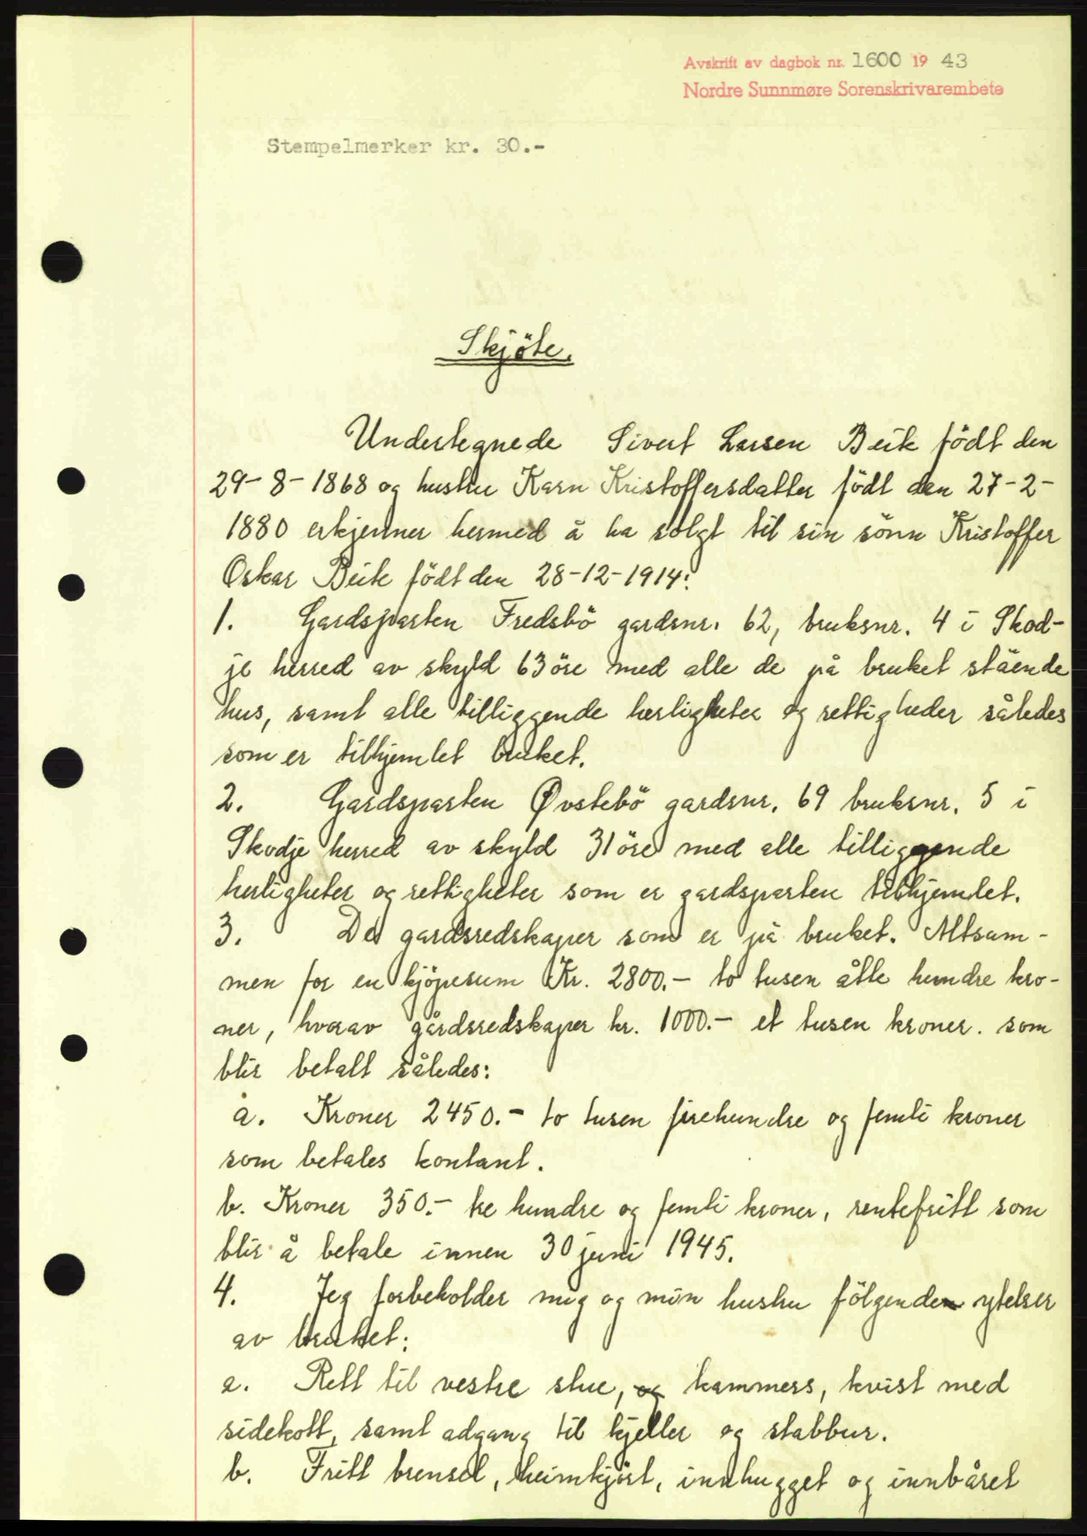 Avskrift av dagbok nr. 1600 19 43
Nordre Sunnmøre Sorenskrivarembete
Stempelmerker kr. 30.-
Skjöte.
Undertegnede Sivert Larsen Beite födt den
29-8-1868 og hustru Karn Kristoffersdatter födt den 27-2-
1880 erkjenner hermed å ha solgt til sin sönn Kristoffer
Oskar Beite födt den 28-12-1914:
1. Gardsparten Fredsbö gardsnr. 62, bruksnr. 4 i Skod-
je herred av skyld 63 öre med alle de på bruket stående
hus, samt alle tilliggende herligheter og rettigheder således
som er tilhjemlet bruket.
2. Gardsparten Øvstebö gardsnr. 69 bruksnr. 5 i
Skodje herred av skyld 31 öre med alle tilliggende
herligheter og rettigheter som er gardsparten tilhjemlet.
3. De gardsredskaper som er på bruket. Altsam-
men for en kjöpesum Kr. 2800.- to tusen åtte hundre kro-
ner, hvorav gårdsredskaper kr. 1000.- et tusen kroner. som
blir betalt således:
a. Kroner 2450.- to tusen firehundre og femti kroner
som betales kontant.
b. Kroner 350.- tre hundre og femti kroner, rentefritt som
blir å betale innen 30 juni 1945.
4. Jeg forbeholder mig og min hustru fölgende ytelser
av bruket:
a. Rett til vestre stue, og kammers, kvist med
sidekott, samt adgang til kjeller og stabbur.
b. Fritt brensel, heimkjört, innhugget og innbåret